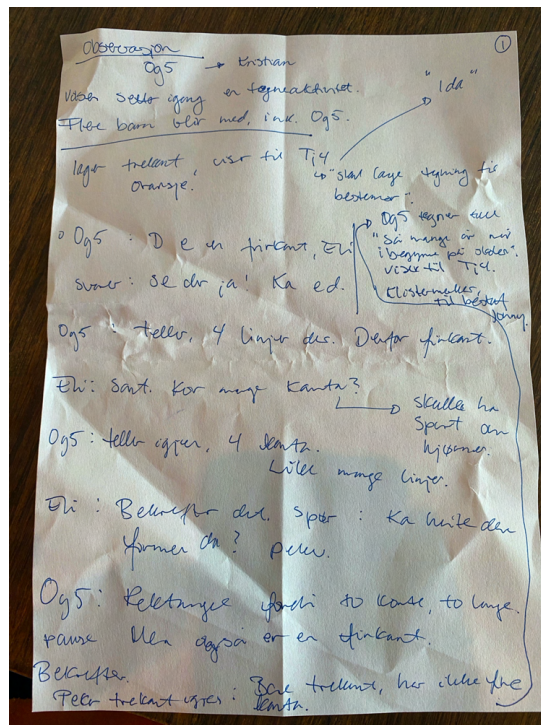 ①
Observasjon
Og5 → Kristian
voksen setter igang en tegneaktivitet.
Flere barn blir med, ink. Og5.
"Ida"
lager trekant, viser til Tj4
oransje.
↳ "skal lage tegning til
bestemor".
Og5 tegner tall
"så mange år når
i begynne på skolen".
viser til Tj4.
Klistremerker,
til bestefar
Jonny.
Og5: D e en firkant, Eli
svarer: Se der ja! Ka e d.
Og5: teller, 4 linjer der. Derfor firkant.
Eli: Sant. Kor mange kanta?
→ skulle ha
spurt om
hjørner.
Og5: teller igjen, 4 kanta.
Like mange linjer.
Eli: Bekrefter det. Spør: Ka heite den
formen da? peker.
Og5: Rektangel fordi to korte, to lange.
pause Men også er en firkant.
Bekrefter.
Peker trekant igjen: Bare trekant, har ikke fire
kanta.